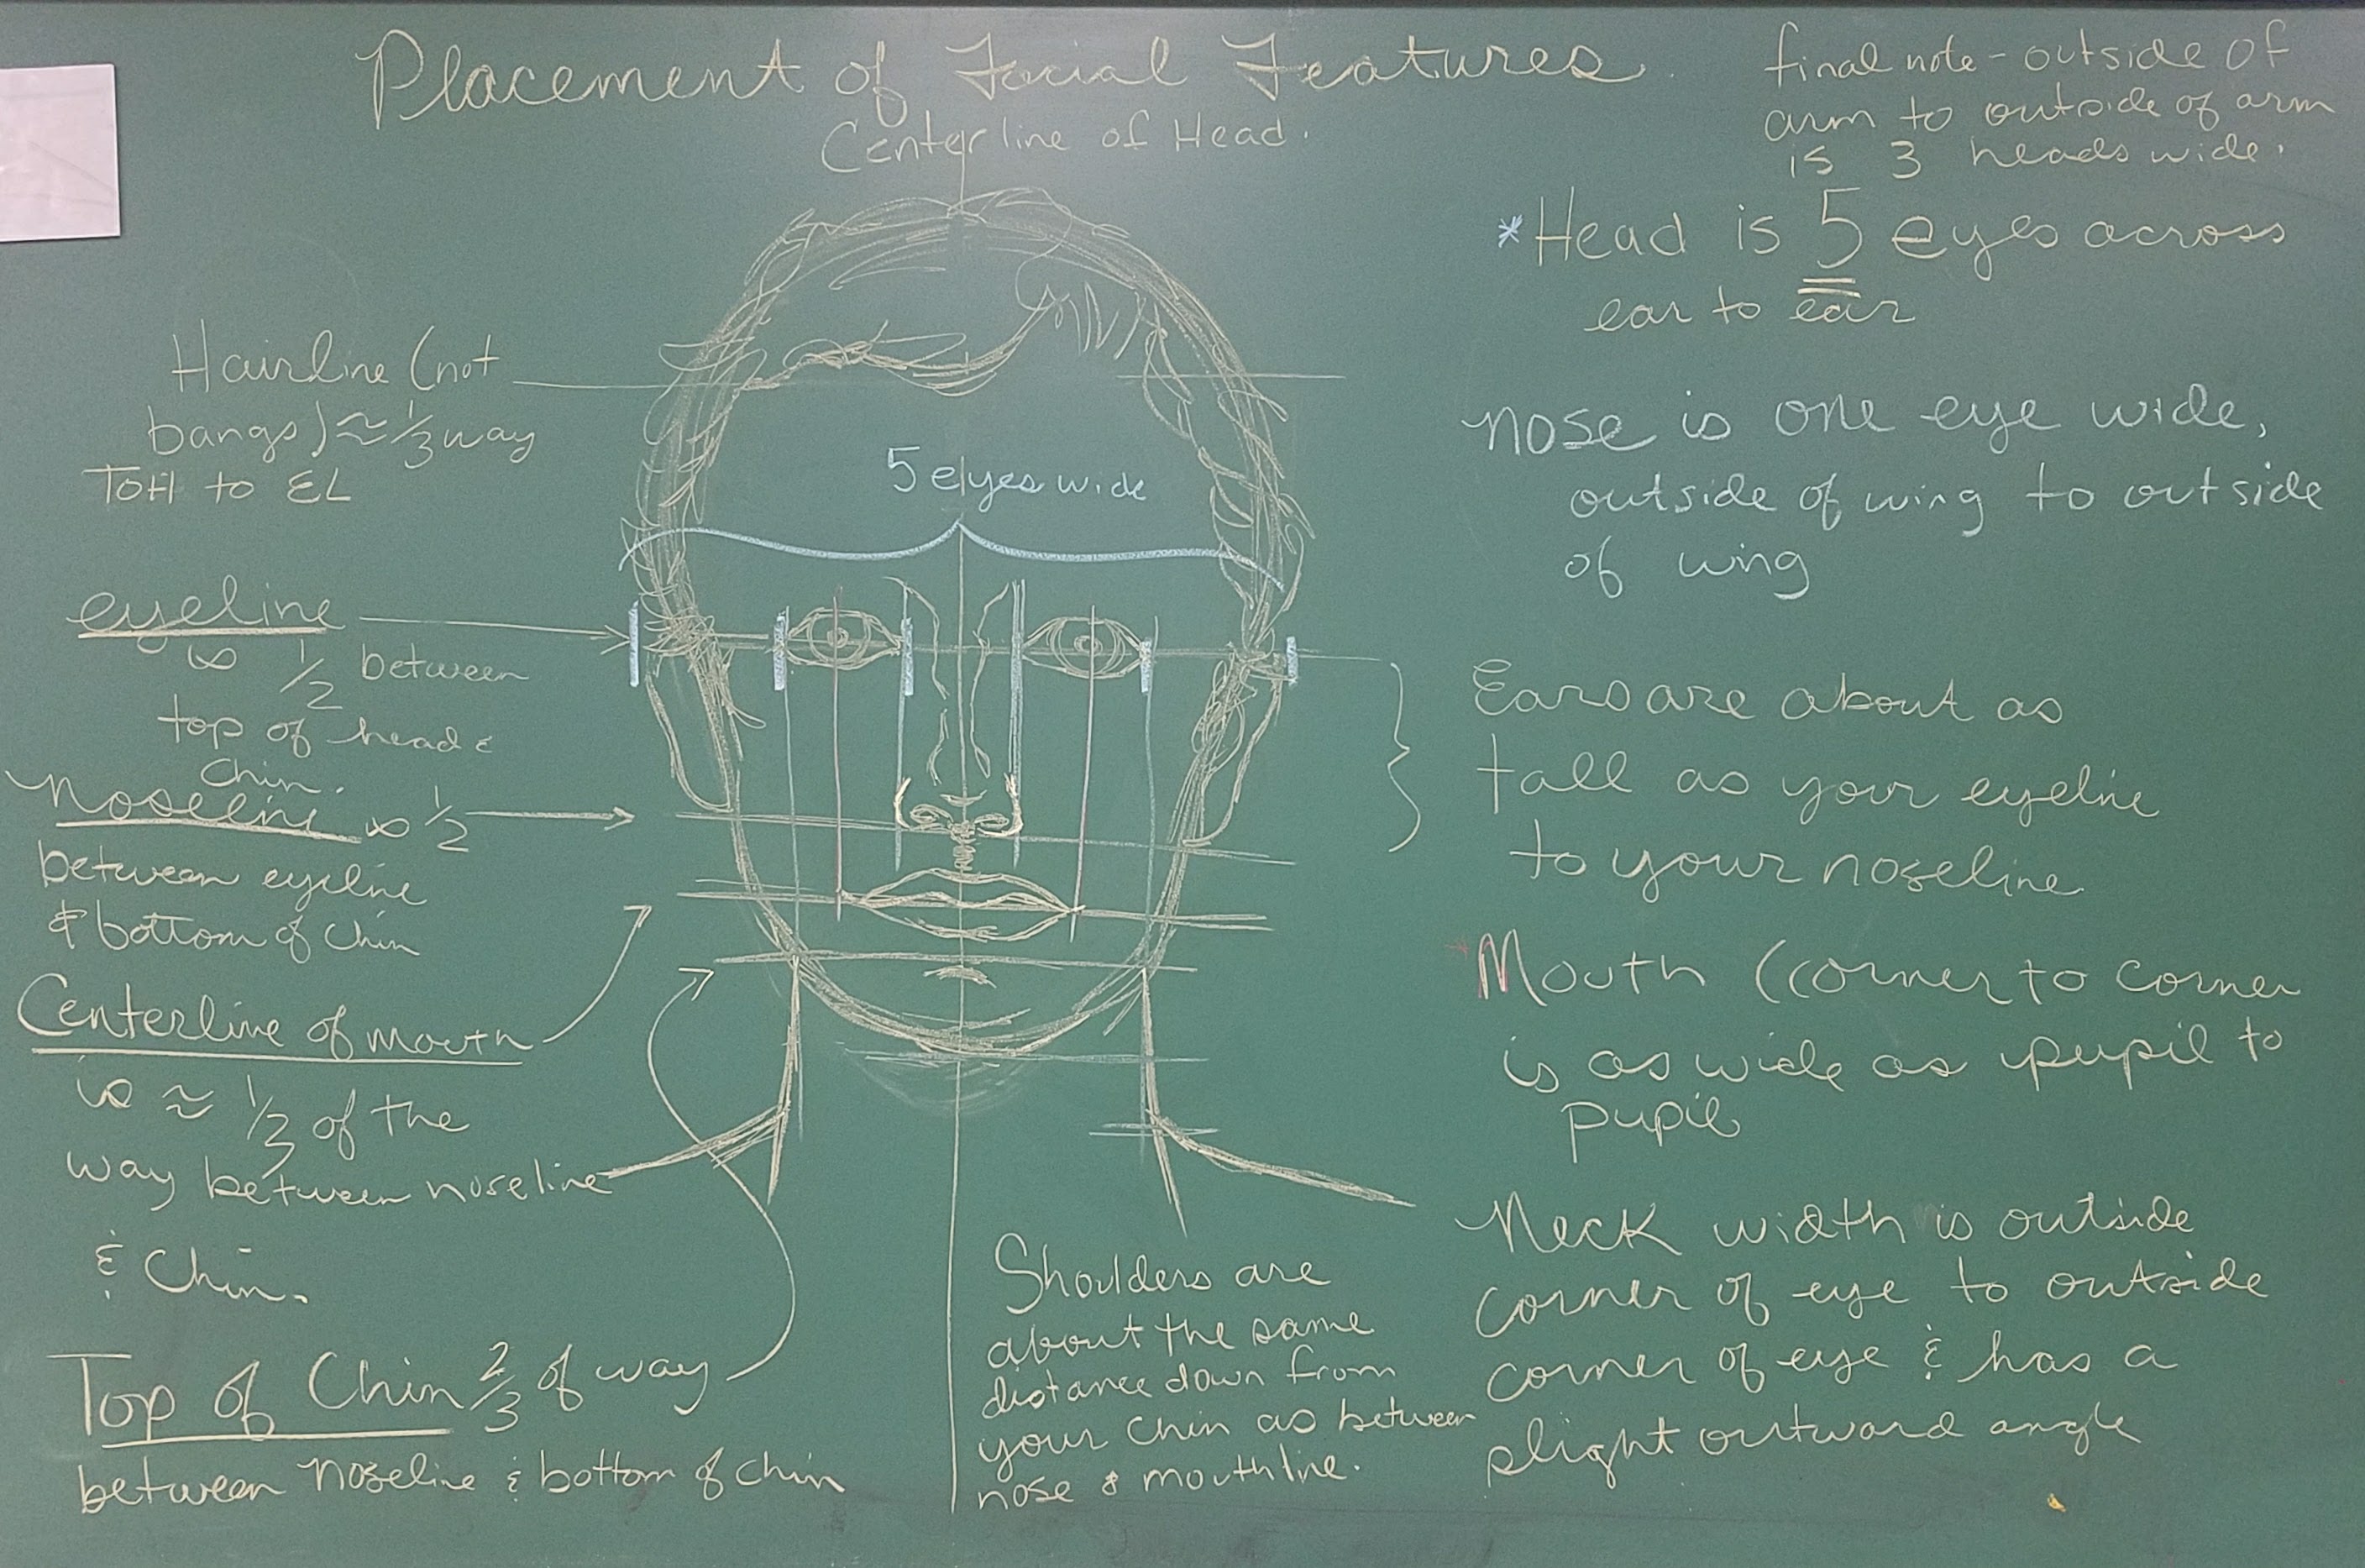 Placement of Facial Features
Centerline of Head.
final note - outside of
arm to outside of arm
is 3 heads wide.
*Head is 5 eyes across
ear to ear
Hairline (not
bangs) ≈ 1/3 way
TOH to EL
5 eyes wide
nose is one eye wide,
outside of wing to outside
of wing
eyeline
is 1/2 between
top of head &
chin.
noseline is 1/2
between eyeline
& bottom of chin
Ears are about as
tall as your eyeline
to your noseline
Centerline of mouth
is ≈ 1/3 of the
way between noseline
& Chin.
*Mouth (corner to corner
is as wide as pupil to
pupil
Top of Chin 2/3 of way
between noseline & bottom of chin
Shoulders are
about the same
distance down from
your chin as between
nose & mouthline.
Neck width is outside
corner of eye to outside
corner of eye & has a
slight outward angle